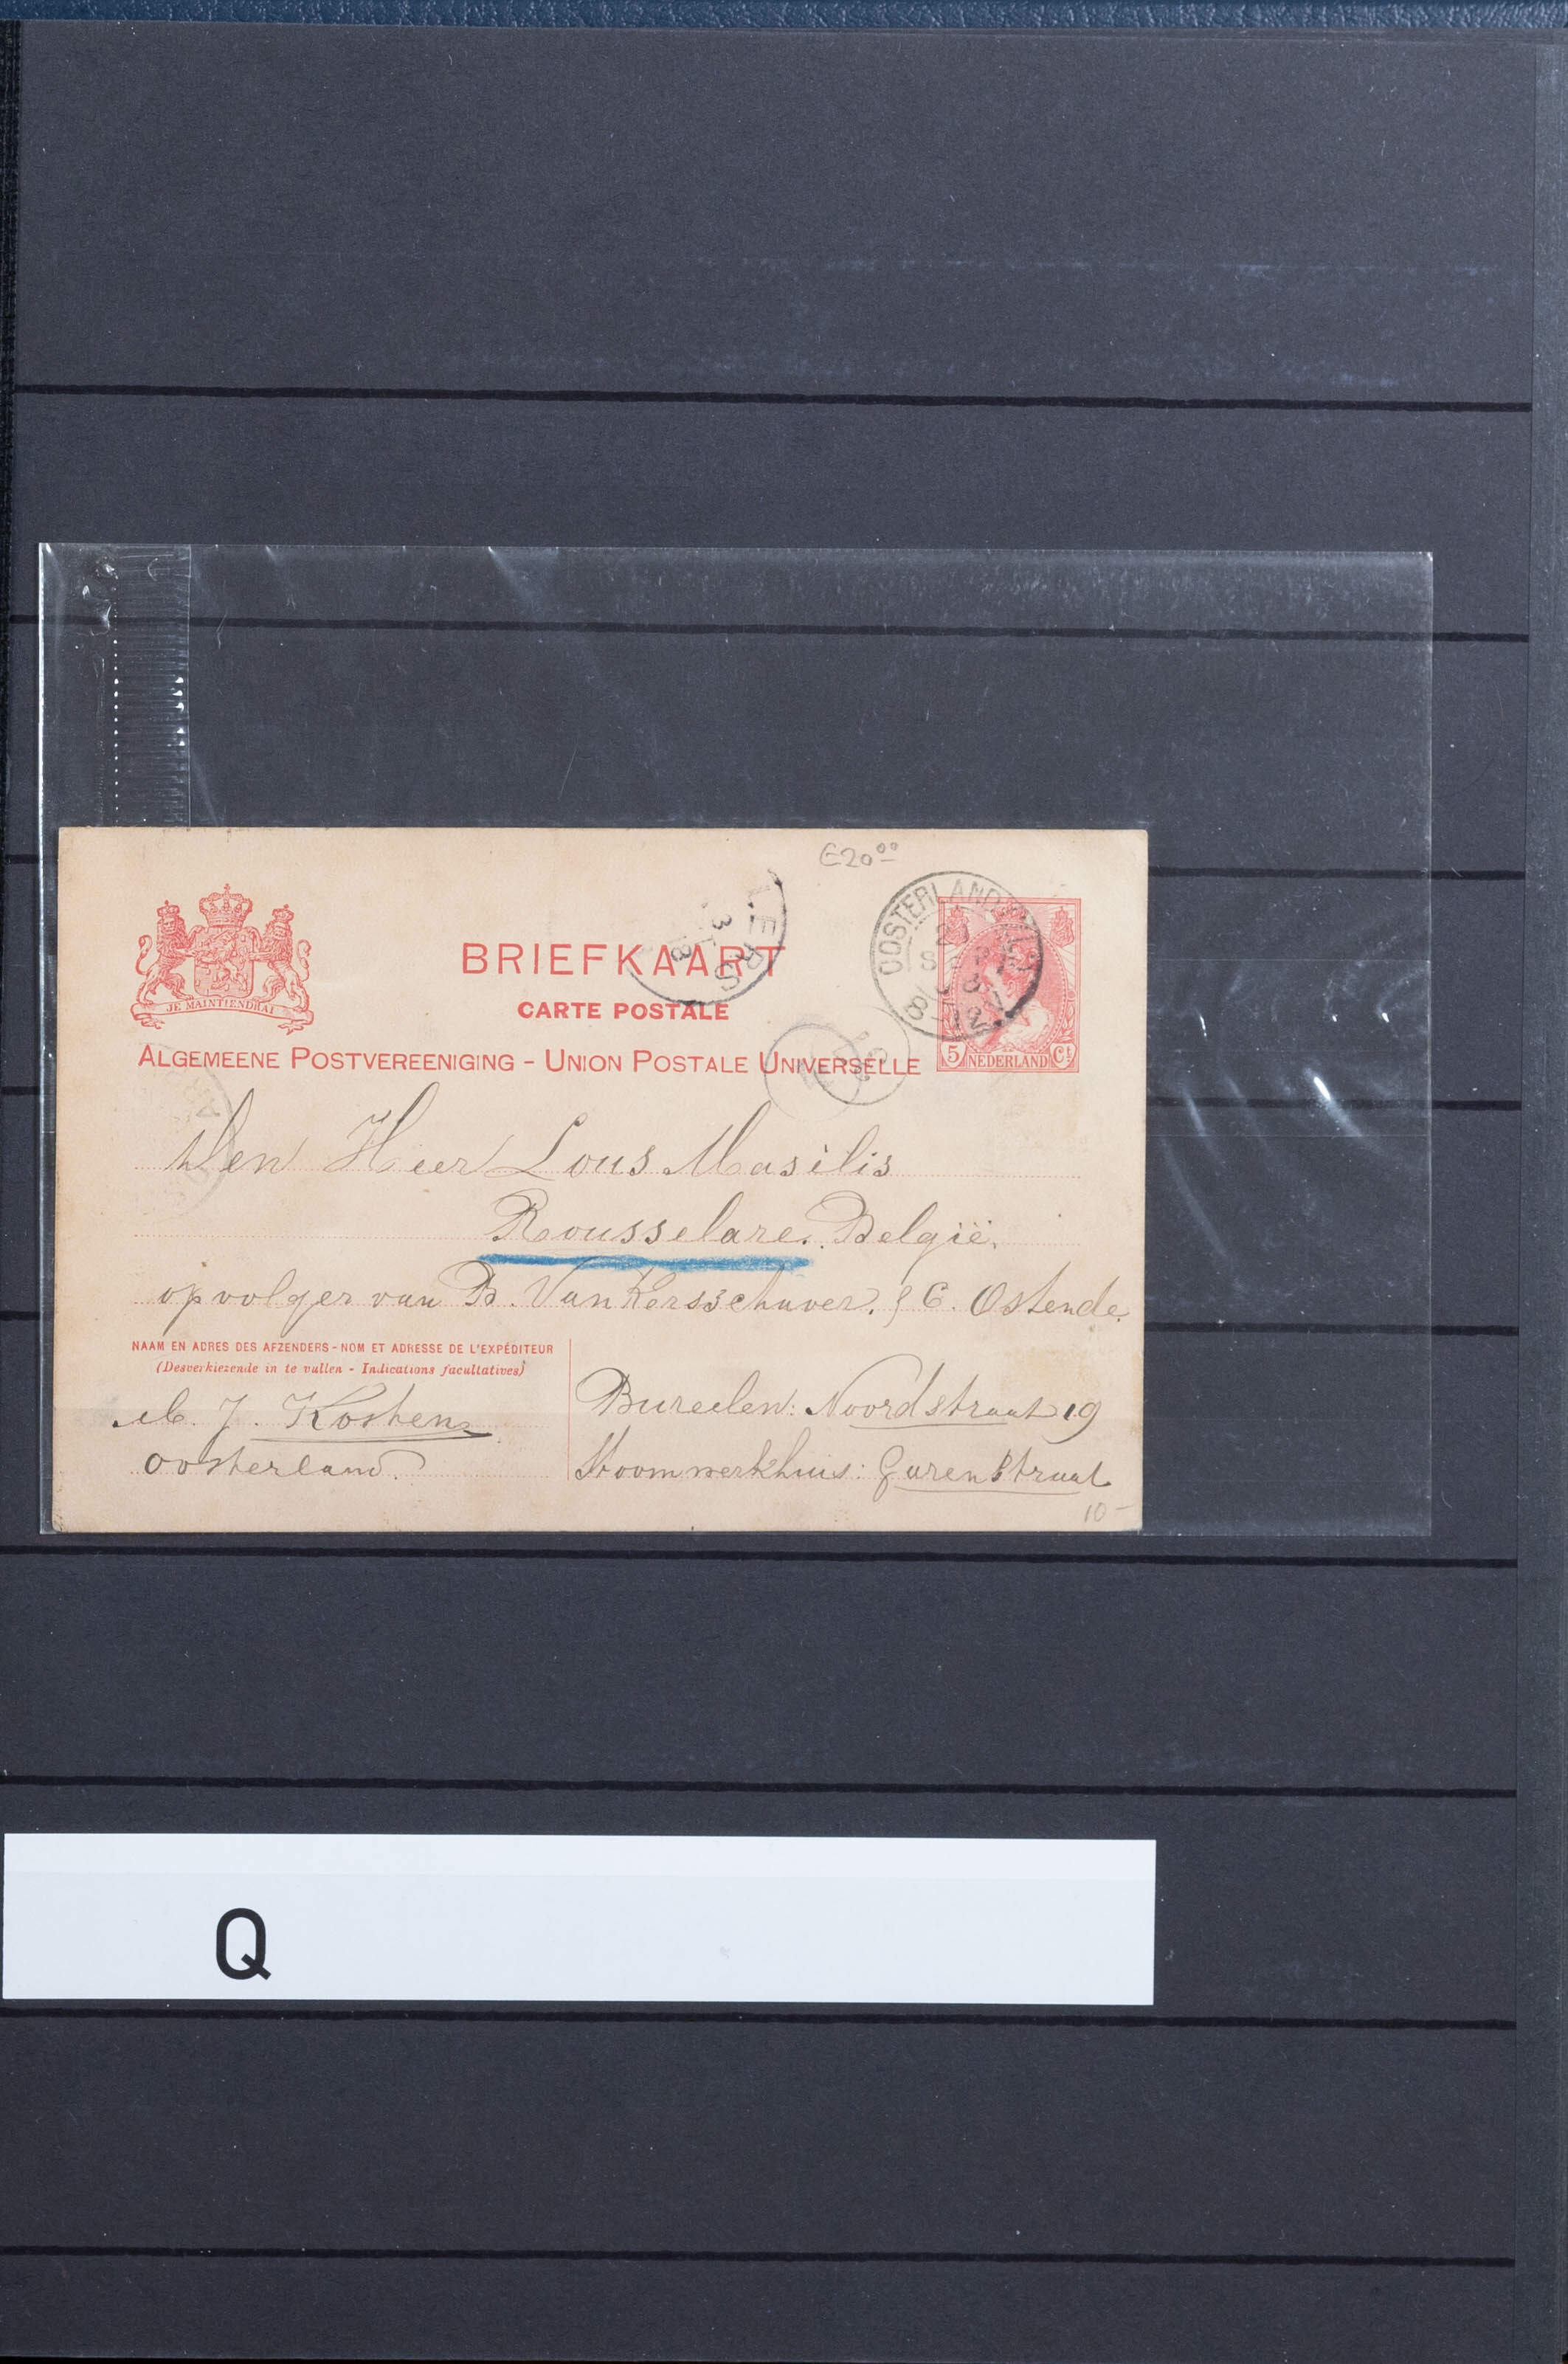 €20⁰⁰
JE MAINTIENDRAI
BRIEFKAART
CARTE POSTALE
ALGEMEENE POSTVEREENIGING - UNION POSTALE UNIVERSELLE
OOSTERLAND
LERS
5 NEDERLAND Ct
Den Heer Lous Masilis
Rousselare. België.
opvolger van B. Van Kersschaver. & C. Ostende
NAAM EN ADRES DES AFZENDERS - NOM ET ADRESSE DE L'EXPÉDITEUR
(Desverkiezende in te vullen - Indications facultatives)
J. Kosten
Oosterland.
Bureelen: Noordstraat 19
Stoomwerkhuis: Garenstraat
10-
Q